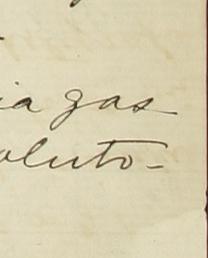 ia gas
oluto-